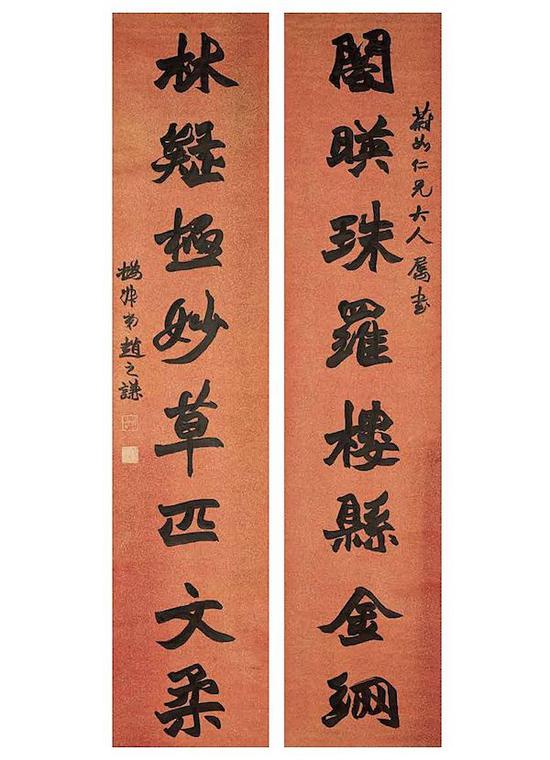 蔚如仁兄大人屬書
閣暎珠羅樓縣金網
林疑極妙草匹文柔
撝尗弟趙之謙